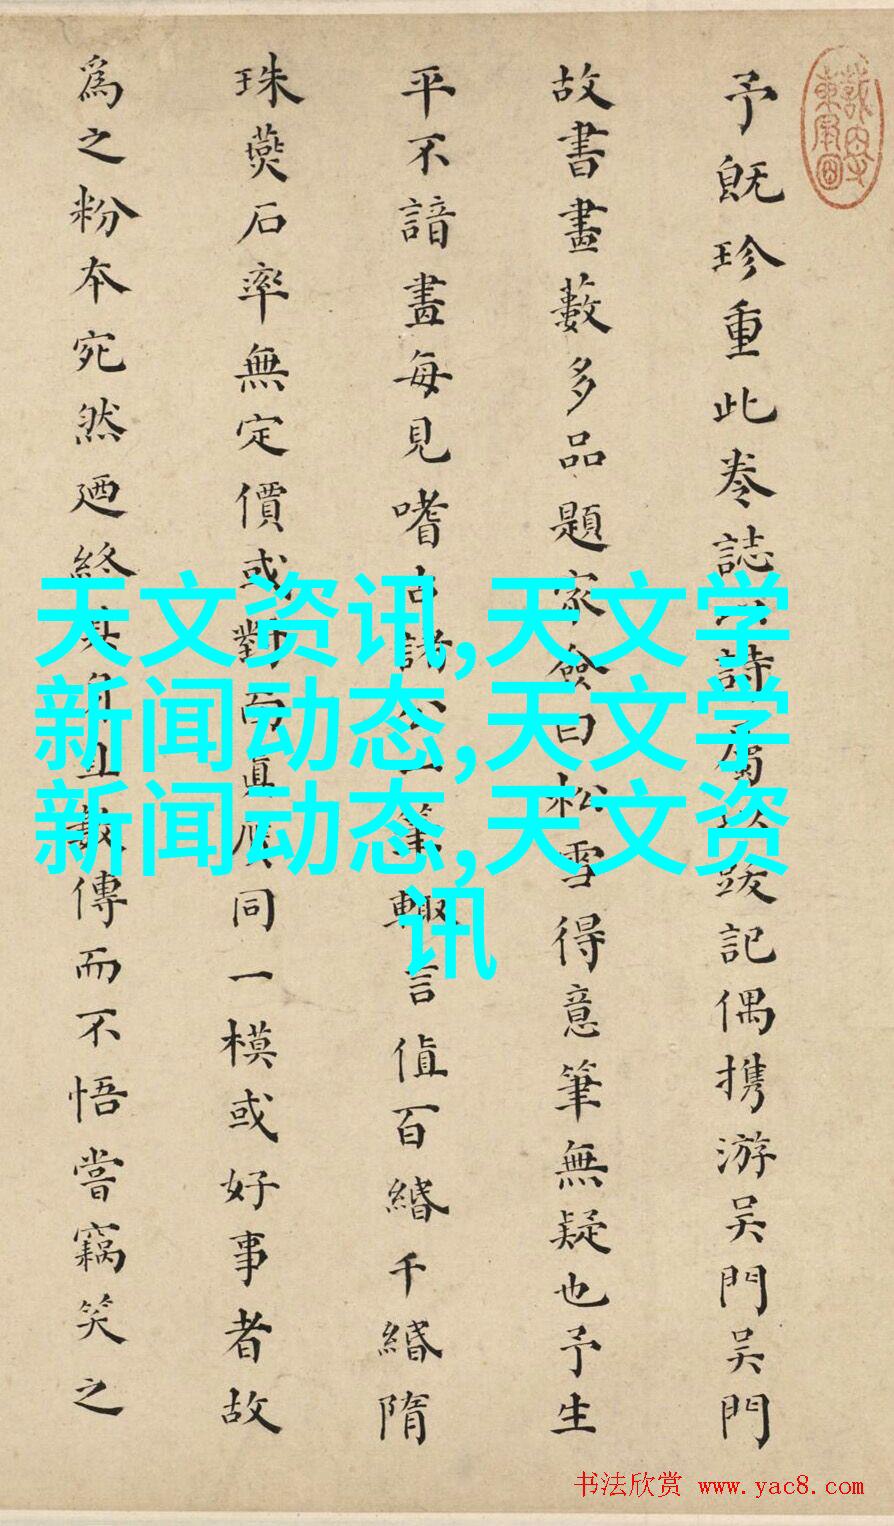 予既珍重此卷誌
詩屬
跋記偶携游吴門吴門
故書畫藪多品題家僉曰松雪得意筆無疑也予生
平不諳畫每見嗜古諸公一筆輙言值百緡千緡隋
珠燕石率無定價或對而真贋同一模或好事者故
為之粉本宛然廼終其身且数傳而不悟嘗竊笑之
天文资讯,天文学
新闻动态,天文学
新闻动态,天文资
讯
书法欣赏 www.yac8.com